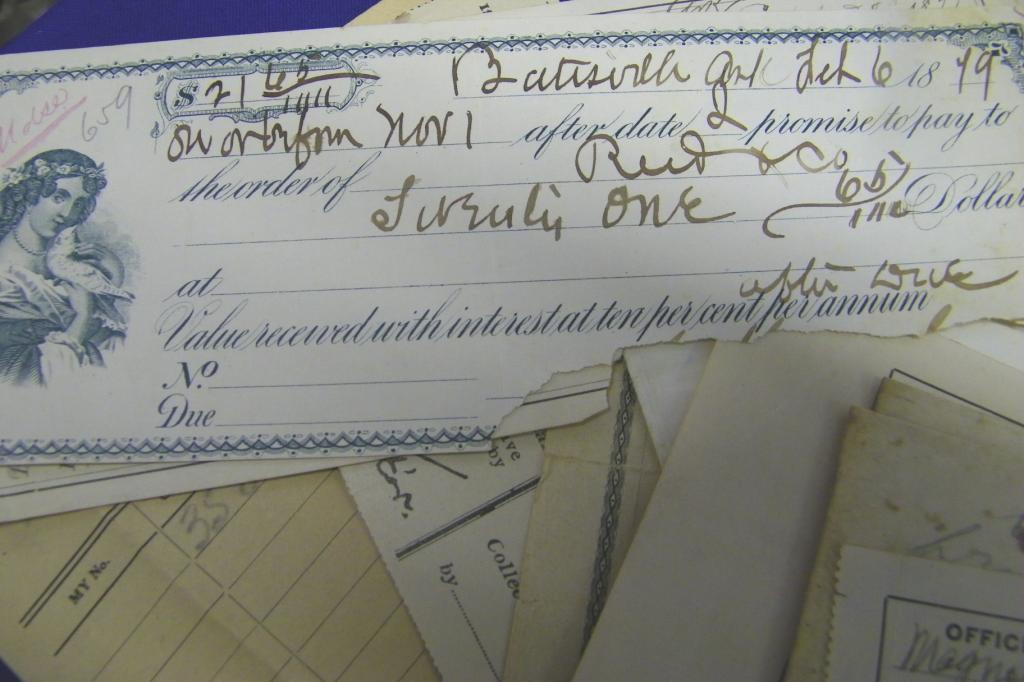 $ 21 65/100
Batesville Ark Feb 6 1879
659
on or before Nov 1 after date I promise to pay to
the order of Reed & Co
Twenty One 65/100 Dollar
at
after due
Value received with interest at ten per cent per annum
No.
Due
ve
by
35
MY No.
Collec
by
OFFIC
Magn